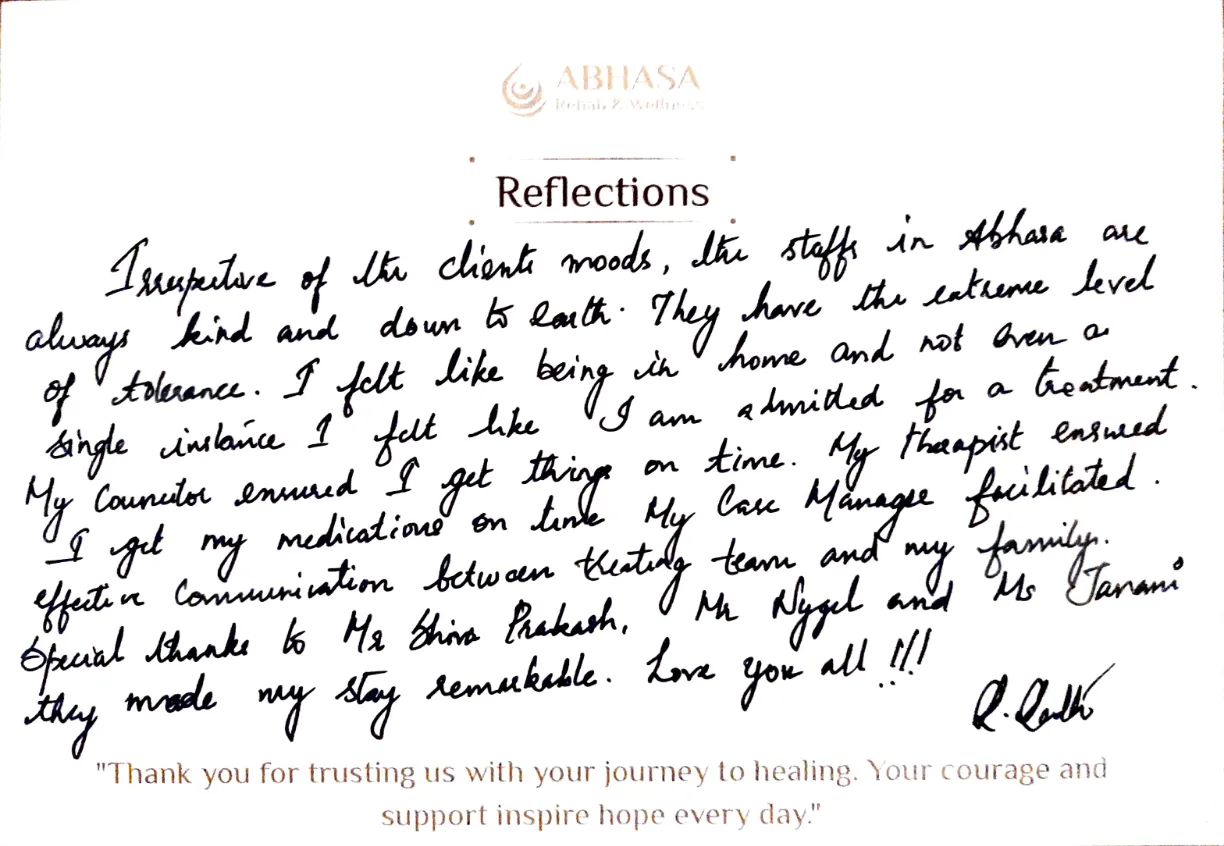 ABHASA
Rehab & Wellness
Reflections
Irrespective of the clients moods, the staffs in Abhasa are
always kind and down to earth. They have the extreme level
of tolerance. I felt like being in home and not even a
single instance I felt like I am admitted for a treatment.
My Councilor ensured I get things on time. My therapist ensured
I get my medications on time My Case Manager facilitated.
effective Communication between treating team and my family.
Special thanks to Mr Shiva Prakash, Mr Nygel and Ms Janani
they made my stay remarkable. Love you all !!!
"Thank you for trusting us with your journey to healing. Your courage and
support inspire hope every day."